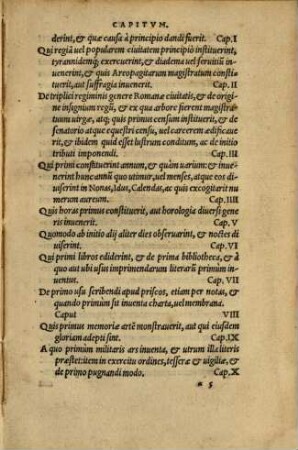 CAPITVM.
derint, & quæ causa à principio dandi fuerit. Cap.I
Qui regiã uel popularem ciuitatem principiò instituerint,
tyrannidemq; exercuerint, & diadema uel seruitiũ in-
uenerint, & quis Areopagitarum magistratum consti-
tuerit, aut suffragia inuenerit. Cap.II
De triplici regiminis genere Romanæ ciuitatis, & de origine
insignium regũ, & ex qua arbore fierent magistra-
tuum uirgæ, atq; quis primus censum instituerit, & de
senatorio atque equestri censu, uel carcerem ædificaue
rit, & ibidem quid esset lustrum conditum, ac de initio
tributi imponendi. Cap.III
Qui primi constituerint annum, & quàm uarium: & inue-
nerint hunc annũ quo utimur, uel menses, atque eos di-
uiserint in Nonas, Idus, Calendas, ac quis excogitarit nu
merum aureum. Cap.IIII
Quis horas primus constituerit, aut horologia diuersi gene
ris inuenerit. Cap.V
Quomodo ab initio alij aliter dies obseruarint, & noctes di
uiserint. Cap.VI
Qui primi libros ediderint, & de prima bibliotheca, & à
quo aut ubi usus imprimendarum literarũ primùm in-
uentus. Cap.VII
De primo usu scribendi apud priscos, etiam per notas, &
quando primùm sit inuenta charta, uel membrana.
Caput VIII
Quis primus memoriæ artẽ monstrauerit, aut qui eiusdem
gloriam adepti sint. Cap.IX
A quo primùm militaris ars inuenta, & utrum illa literis
præstet: item in exercitu ordines, tesseræ & uigiliæ, & 
de primo pugnandi modo. Cap.X
* 5